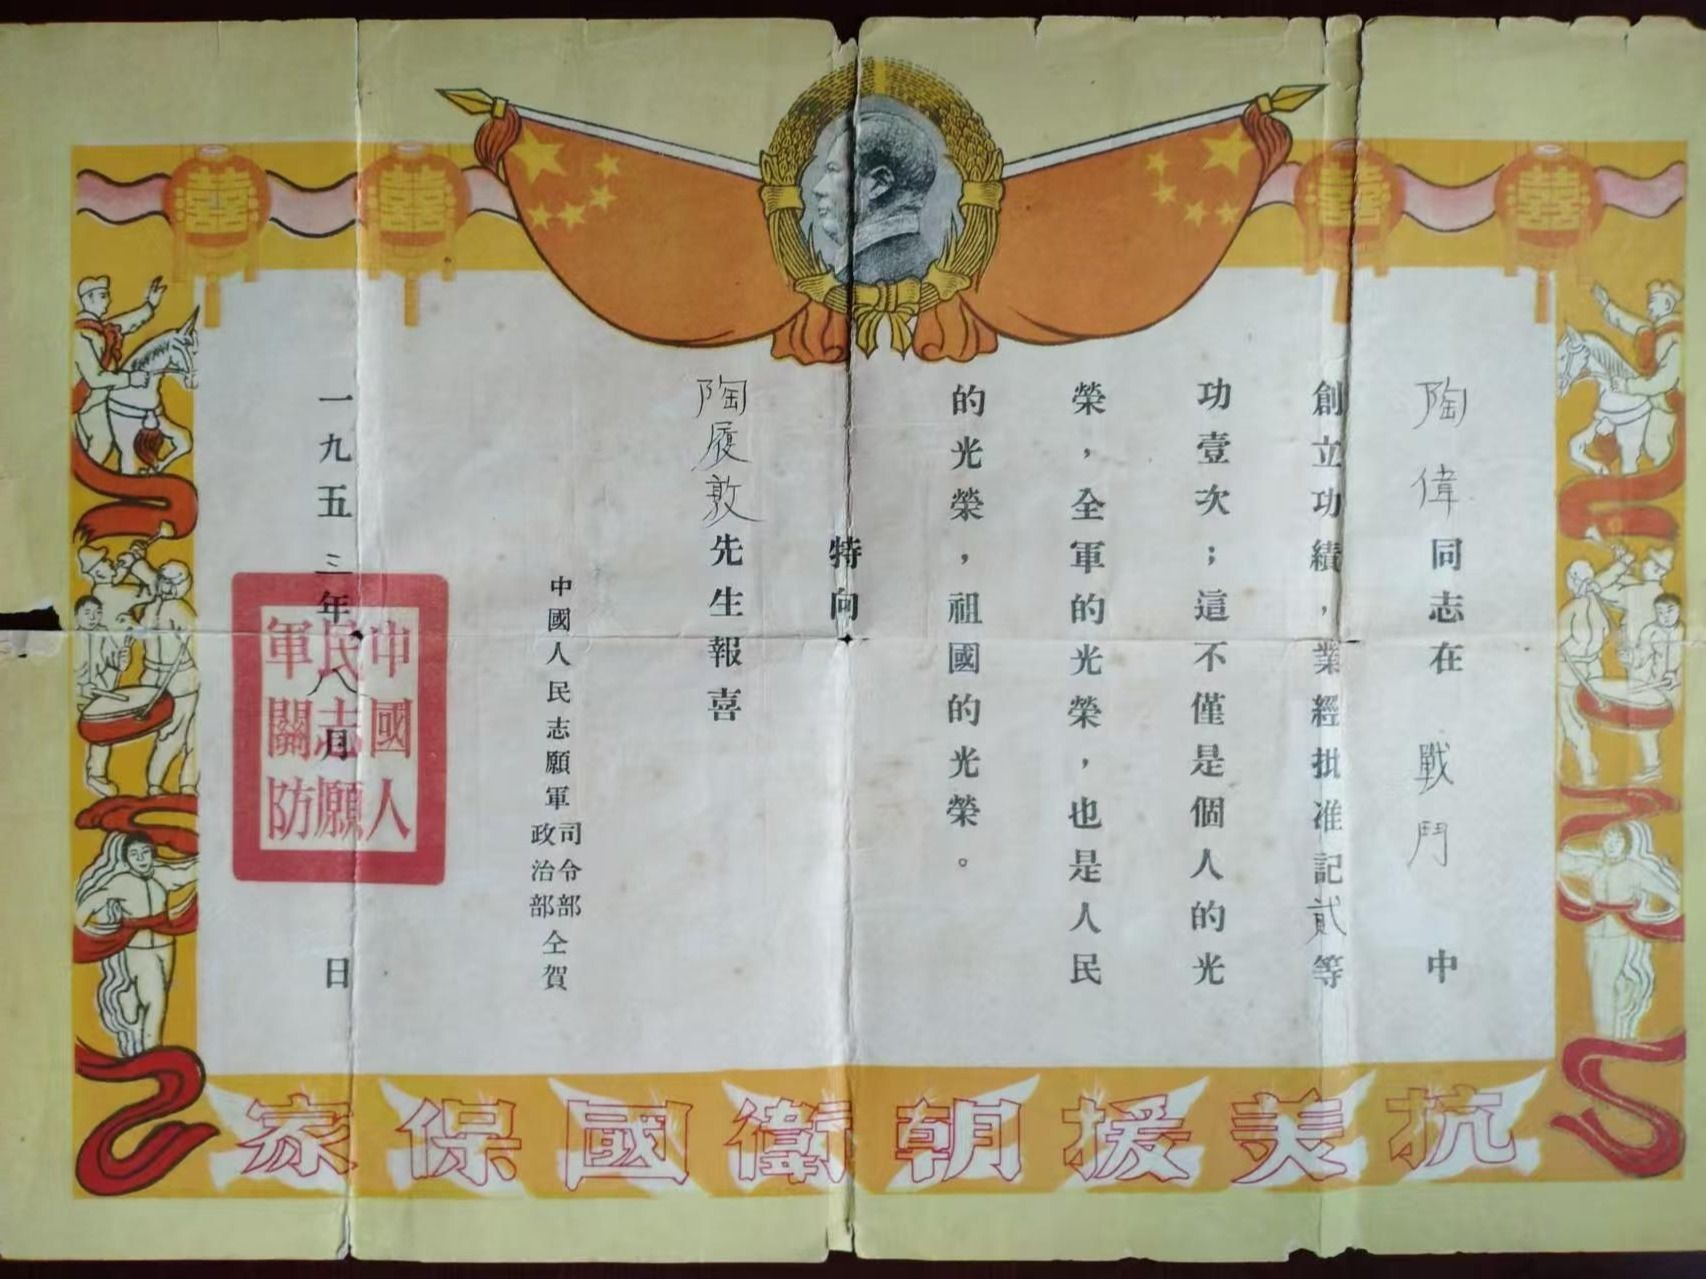 陶偉同志在 戰鬥 中
創立功績，業經批准記貳等
功壹次；這不僅是個人的光
榮，全軍的光榮，也是人民
的光榮，祖國的光榮。
特向
陶履敦先生報喜
中國人民志願軍
司令部
政治部
仝賀
一九五三年八月 日
中國人
民志願
軍關防
抗美援朝衛國保家
囍
囍
囍
囍